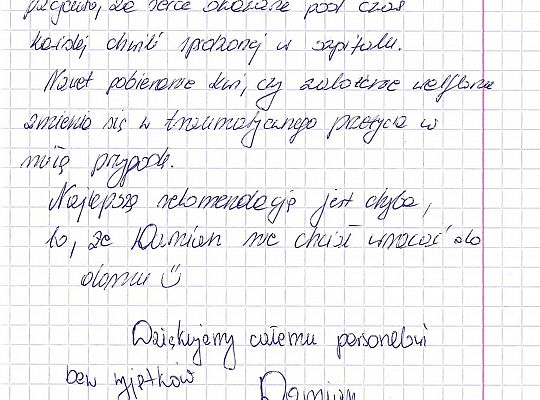 za serce okazane pod czas
każdej chwili spędzonej w szpitalu.
Nawet pobieranie krwi, czy założenie welflonu
zmienia się w traumatycznego przeżycia w
miłą przygodę.
Najlepszą rekomendacją jest chyba,
to, że Damian nie chciał wracać do
domu
Dziękujemy całemu personelowi
bez wyjątków
Damian